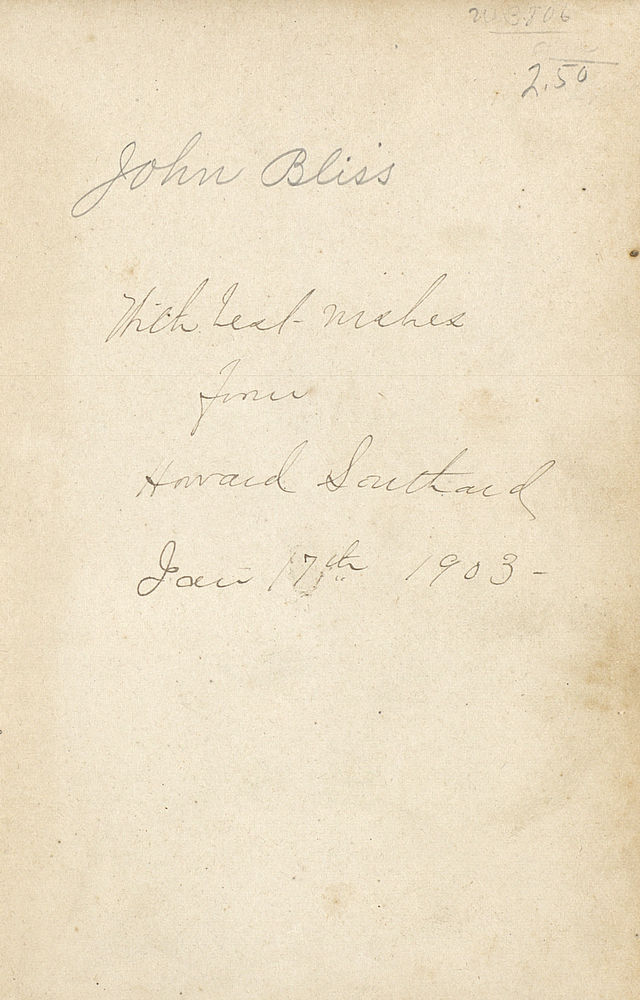 2.50
John Bliss
With best wishes
from
Howard Southard
Jan 17th 1903-